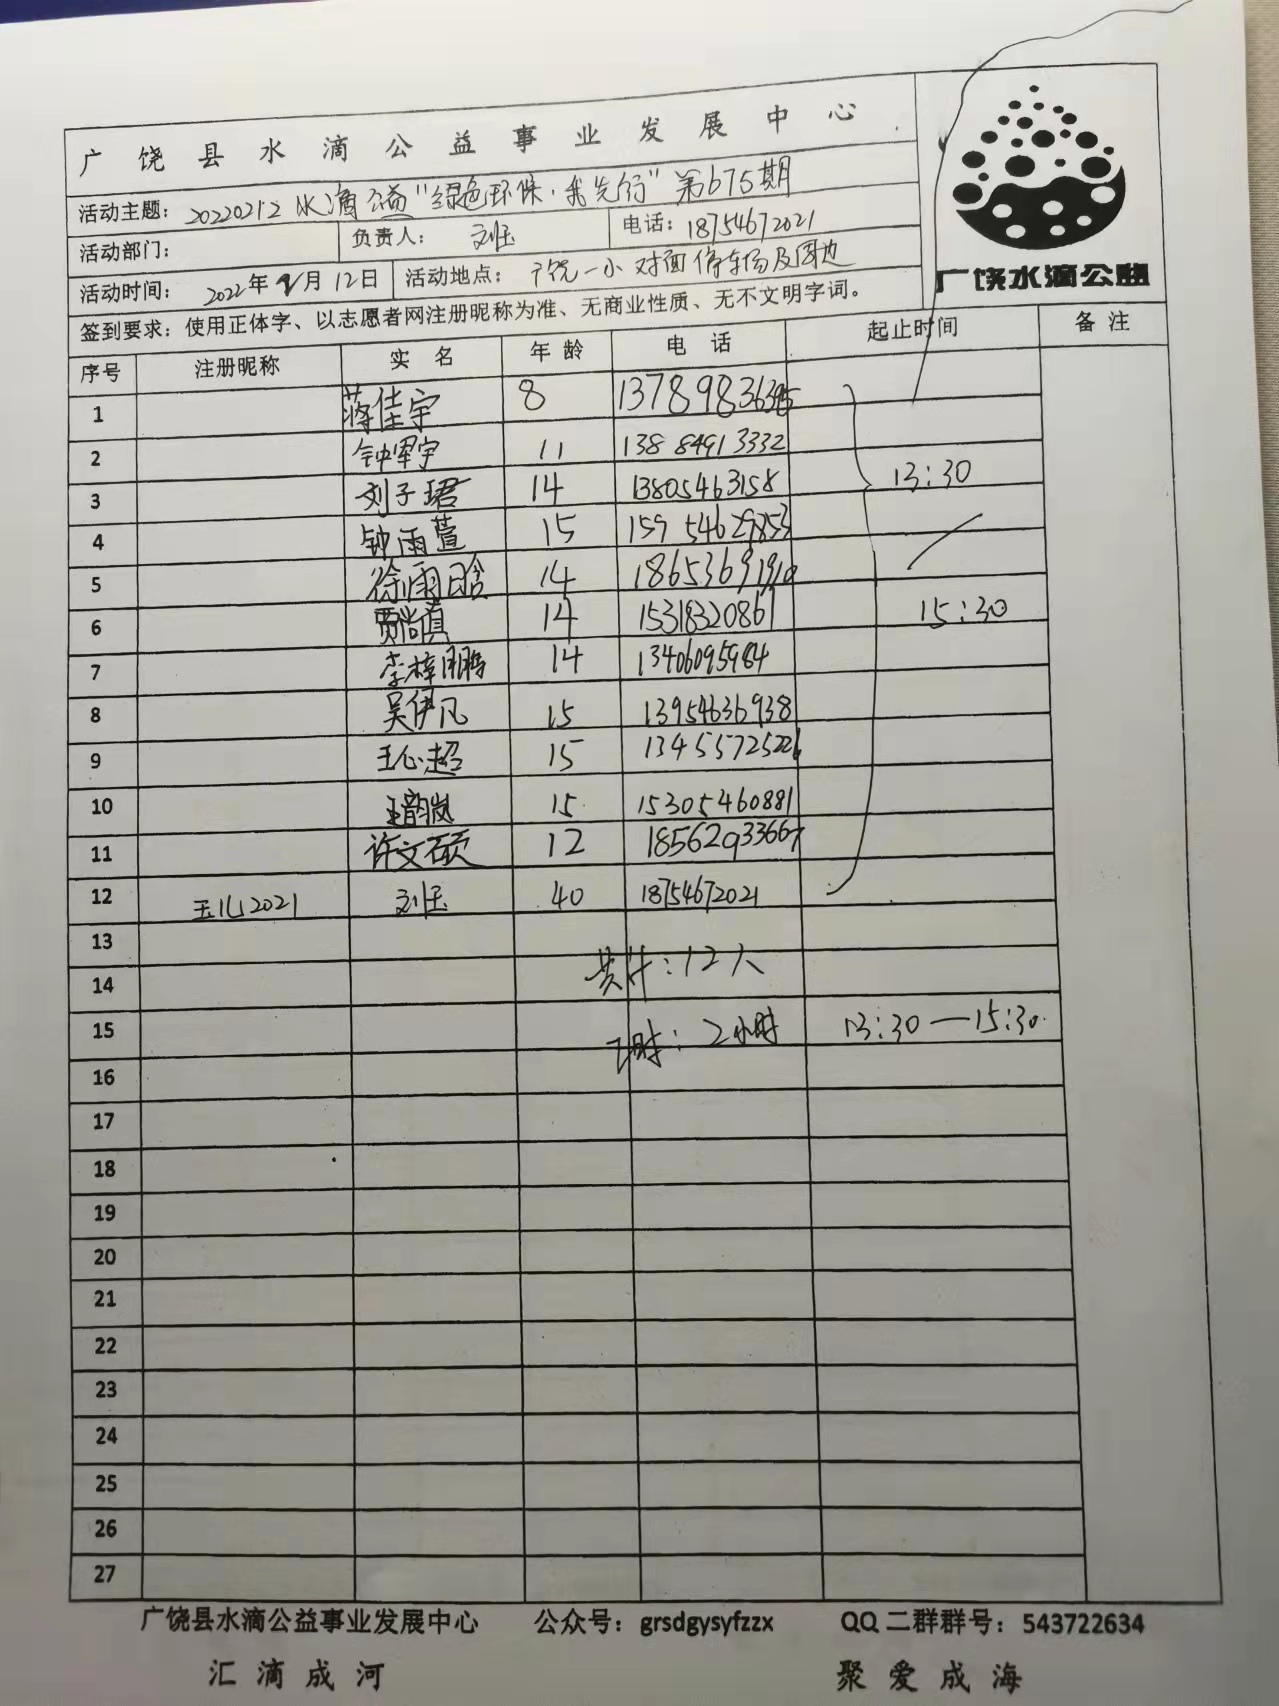 广饶县水滴公益事业发展中心
广饶水滴公益
活动主题：20220212 水滴公益“绿色环保·我先行”第675期
活动部门： 负责人：刘玉 电话：18754672021
活动时间：2022年2月12日 活动地点：广饶一小对面停车场及周边
签到要求：使用正体字、以志愿者网注册昵称为准、无商业性质、无不文明字词。
序号 注册昵称 实名 年龄 电话 起止时间 备注
1 蒋佳宇 8
2 钟军宇 11 13884913332
3 刘子珺 14 13805463158 13:30
4 钟雨萱 15 15954629853
5 徐雨晗 14 18653691910
6 贾尚真 14 15318320861 15:30
7 李梓鹏 14 13406095984
8 吴伊凡 15 13954636938
9 王心超 15 13455725226
10 王韵岚 15 15305460881
11 许文硕 12 18562933667
12 玉儿2021 刘玉 40 18754672021
13
14 共计：12人
15 工时：2小时 13:30—15:30
16
17
18
19
20
21
22
23
24
25
26
27
广饶县水滴公益事业发展中心 公众号：grsdgysyfzzx QQ二群群号：543722634
汇滴成河 聚爱成海